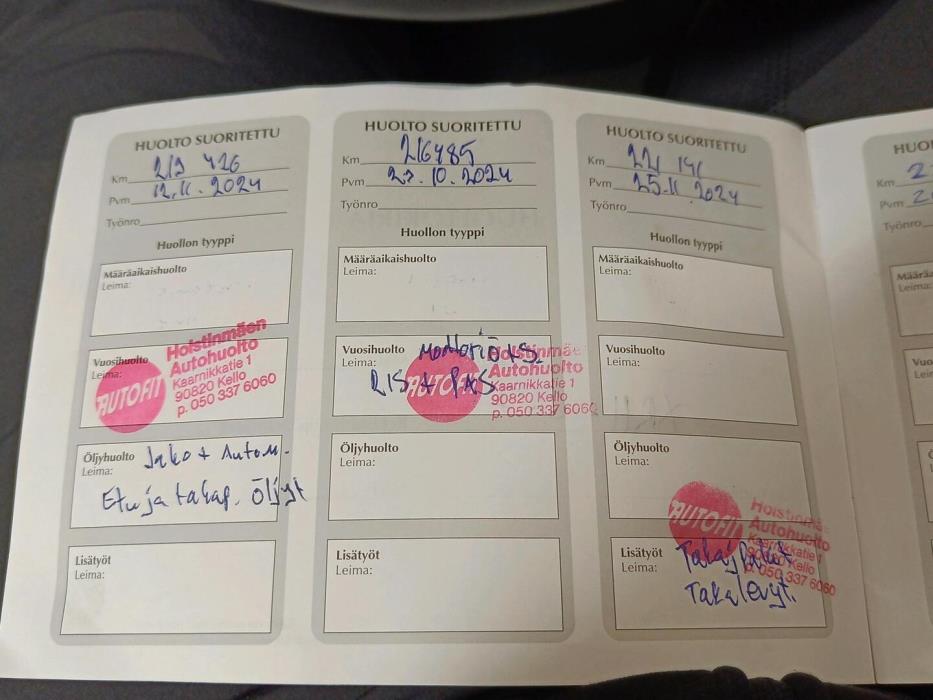 HUOLTO SUORITETTU
Km 219 426
Pvm 12.11.2024
Työnro
Huollon tyyppi
Määräaikaishuolto
Leima:
Vuosihuolto
Leima:
AUTOFIT
Holstinmäen
Autohuolto
Kaarnikkatie 1
90820 Kello
p. 050 337 6060
Öljyhuolto Jako + Autom.
Leima:
Etu ja takap. Öljyt
Lisätyöt
Leima:
HUOLTO SUORITETTU
Km 216485
Pvm 27.10.2024
Työnro
Huollon tyyppi
Määräaikaishuolto
Leima:
Vuosihuolto
Leima:
AUTOFIT
Holstinmäe
Autohuolto
Kaarnikkatie 1
90820 Kello
p. 050 337 6060
Öljyhuolto
Leima:
Lisätyöt
Leima:
HUOLTO SUORITETTU
Km 221 141
Pvm 25.11.2024
Työnro
Huollon tyyppi
Määräaikaishuolto
Leima:
Vuosihuolto
Leima:
Öljyhuolto
Leima:
AUTOFIT
Holstinmäe
Autohuolto
Kaarnikkatie 1
90820 Kello
p. 050 337 6060
Lisätyöt
Leima:
Takalevyt.
HUO
Km
Pvm
Työnro
Määräa
Leima:
Vuo
Leim